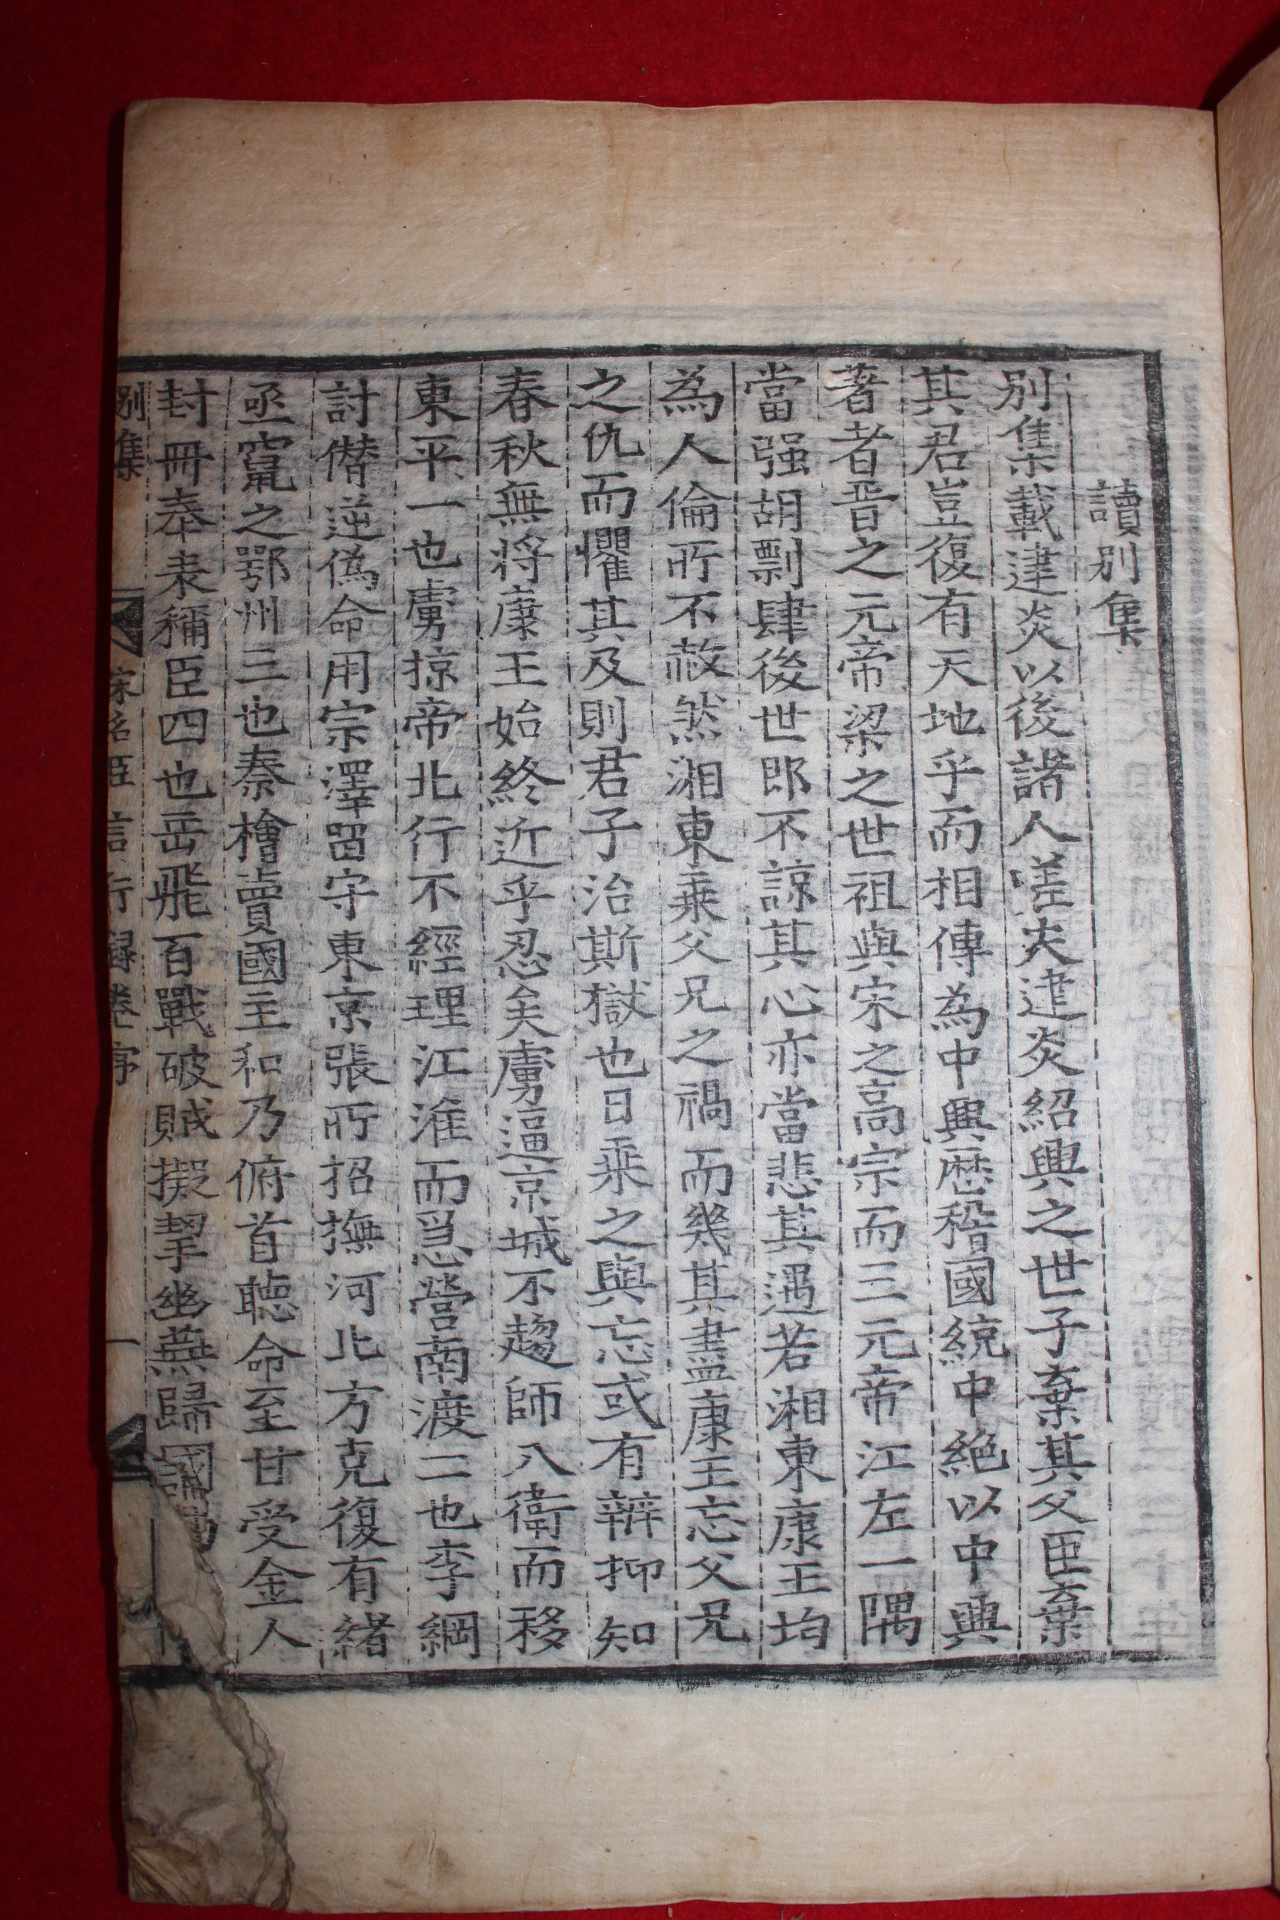 讀別集
別集載建炎以後諸人嗟夫建炎紹興之世子棄其父臣棄
其君豈復有天地乎而相傳為中興歷稽國統中絕以中興
著者晉之元帝梁之世祖與宋之高宗而三元帝江左一隅
當强胡剽肆後世即不諒其心亦當悲其遇若湘東康王均
為人倫所不赦然湘東乘父兄之禍而幾其盡康王忘父兄
之仇而懼其及則君子治斯獄也曰乘之與忘或有辨抑知
春秋無將康王始終近乎忍矣虜逼京城不趨師入衛而移
東平一也虜掠帝北行不經理江淮而急營南渡二也李綱
討僭逆僞命用宗澤留守東京張所招撫河北方克復有緒
亟竄之鄂州三也秦檜賣國主和乃俯首聽命至甘受金人
封冊奉表稱臣四也岳飛百戰破賊擬挈幽燕歸國
別集 宋名臣言行錄卷序 一